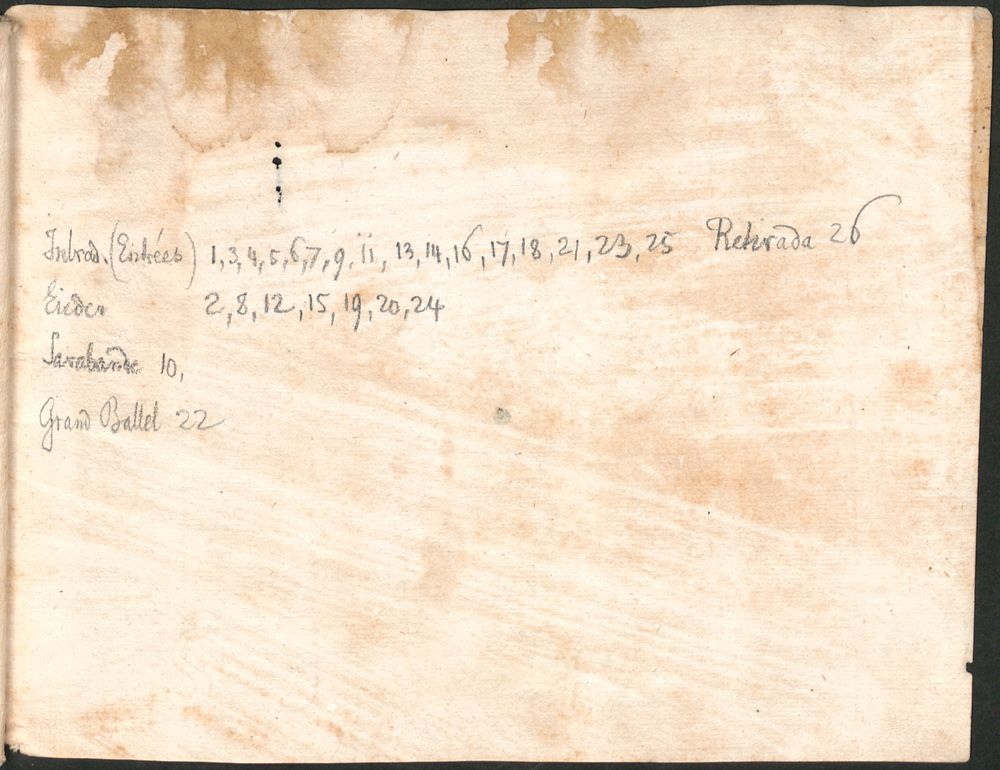 Intrad. (Entrées) 1,3,4,5,6,7,9, 11, 13,14,16,17,18,21,23,25 Retirada 26
Lieder 2,8,12,15,19,20,24
Sarabande 10,
Grand Ballet 22